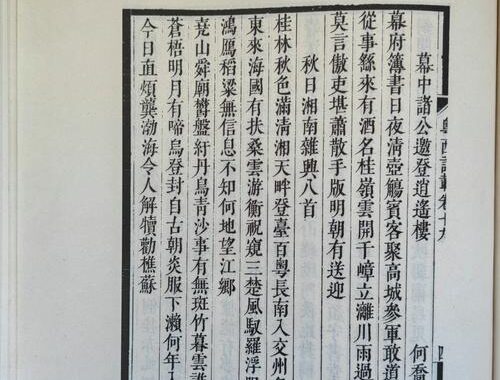 粵西詩載卷十九
四
幕中諸公邀登逍遙樓 何喬
幕府簿書日夜清壺觴賓客聚高城參軍敢道
從事繇來有酒名桂嶺雲開千嶂立灕川雨過
莫言傲吏堪蕭散手版明朝有送迎
秋日湘南雜興八首
桂林秋色滿清湘天畔登臺百粵長南入交州
東來海國有扶桑雲游衡祝窺三楚風馭羅浮
鴻鴈稻粱無信息不知何地望江鄉
堯山舜廟鬱盤紆丹鳥青沙事有無斑竹暮雲
蒼梧明月有啼烏登封自古朝炎服下瀨何年
今日直煩龔渤海令人解犢勸樵蘇